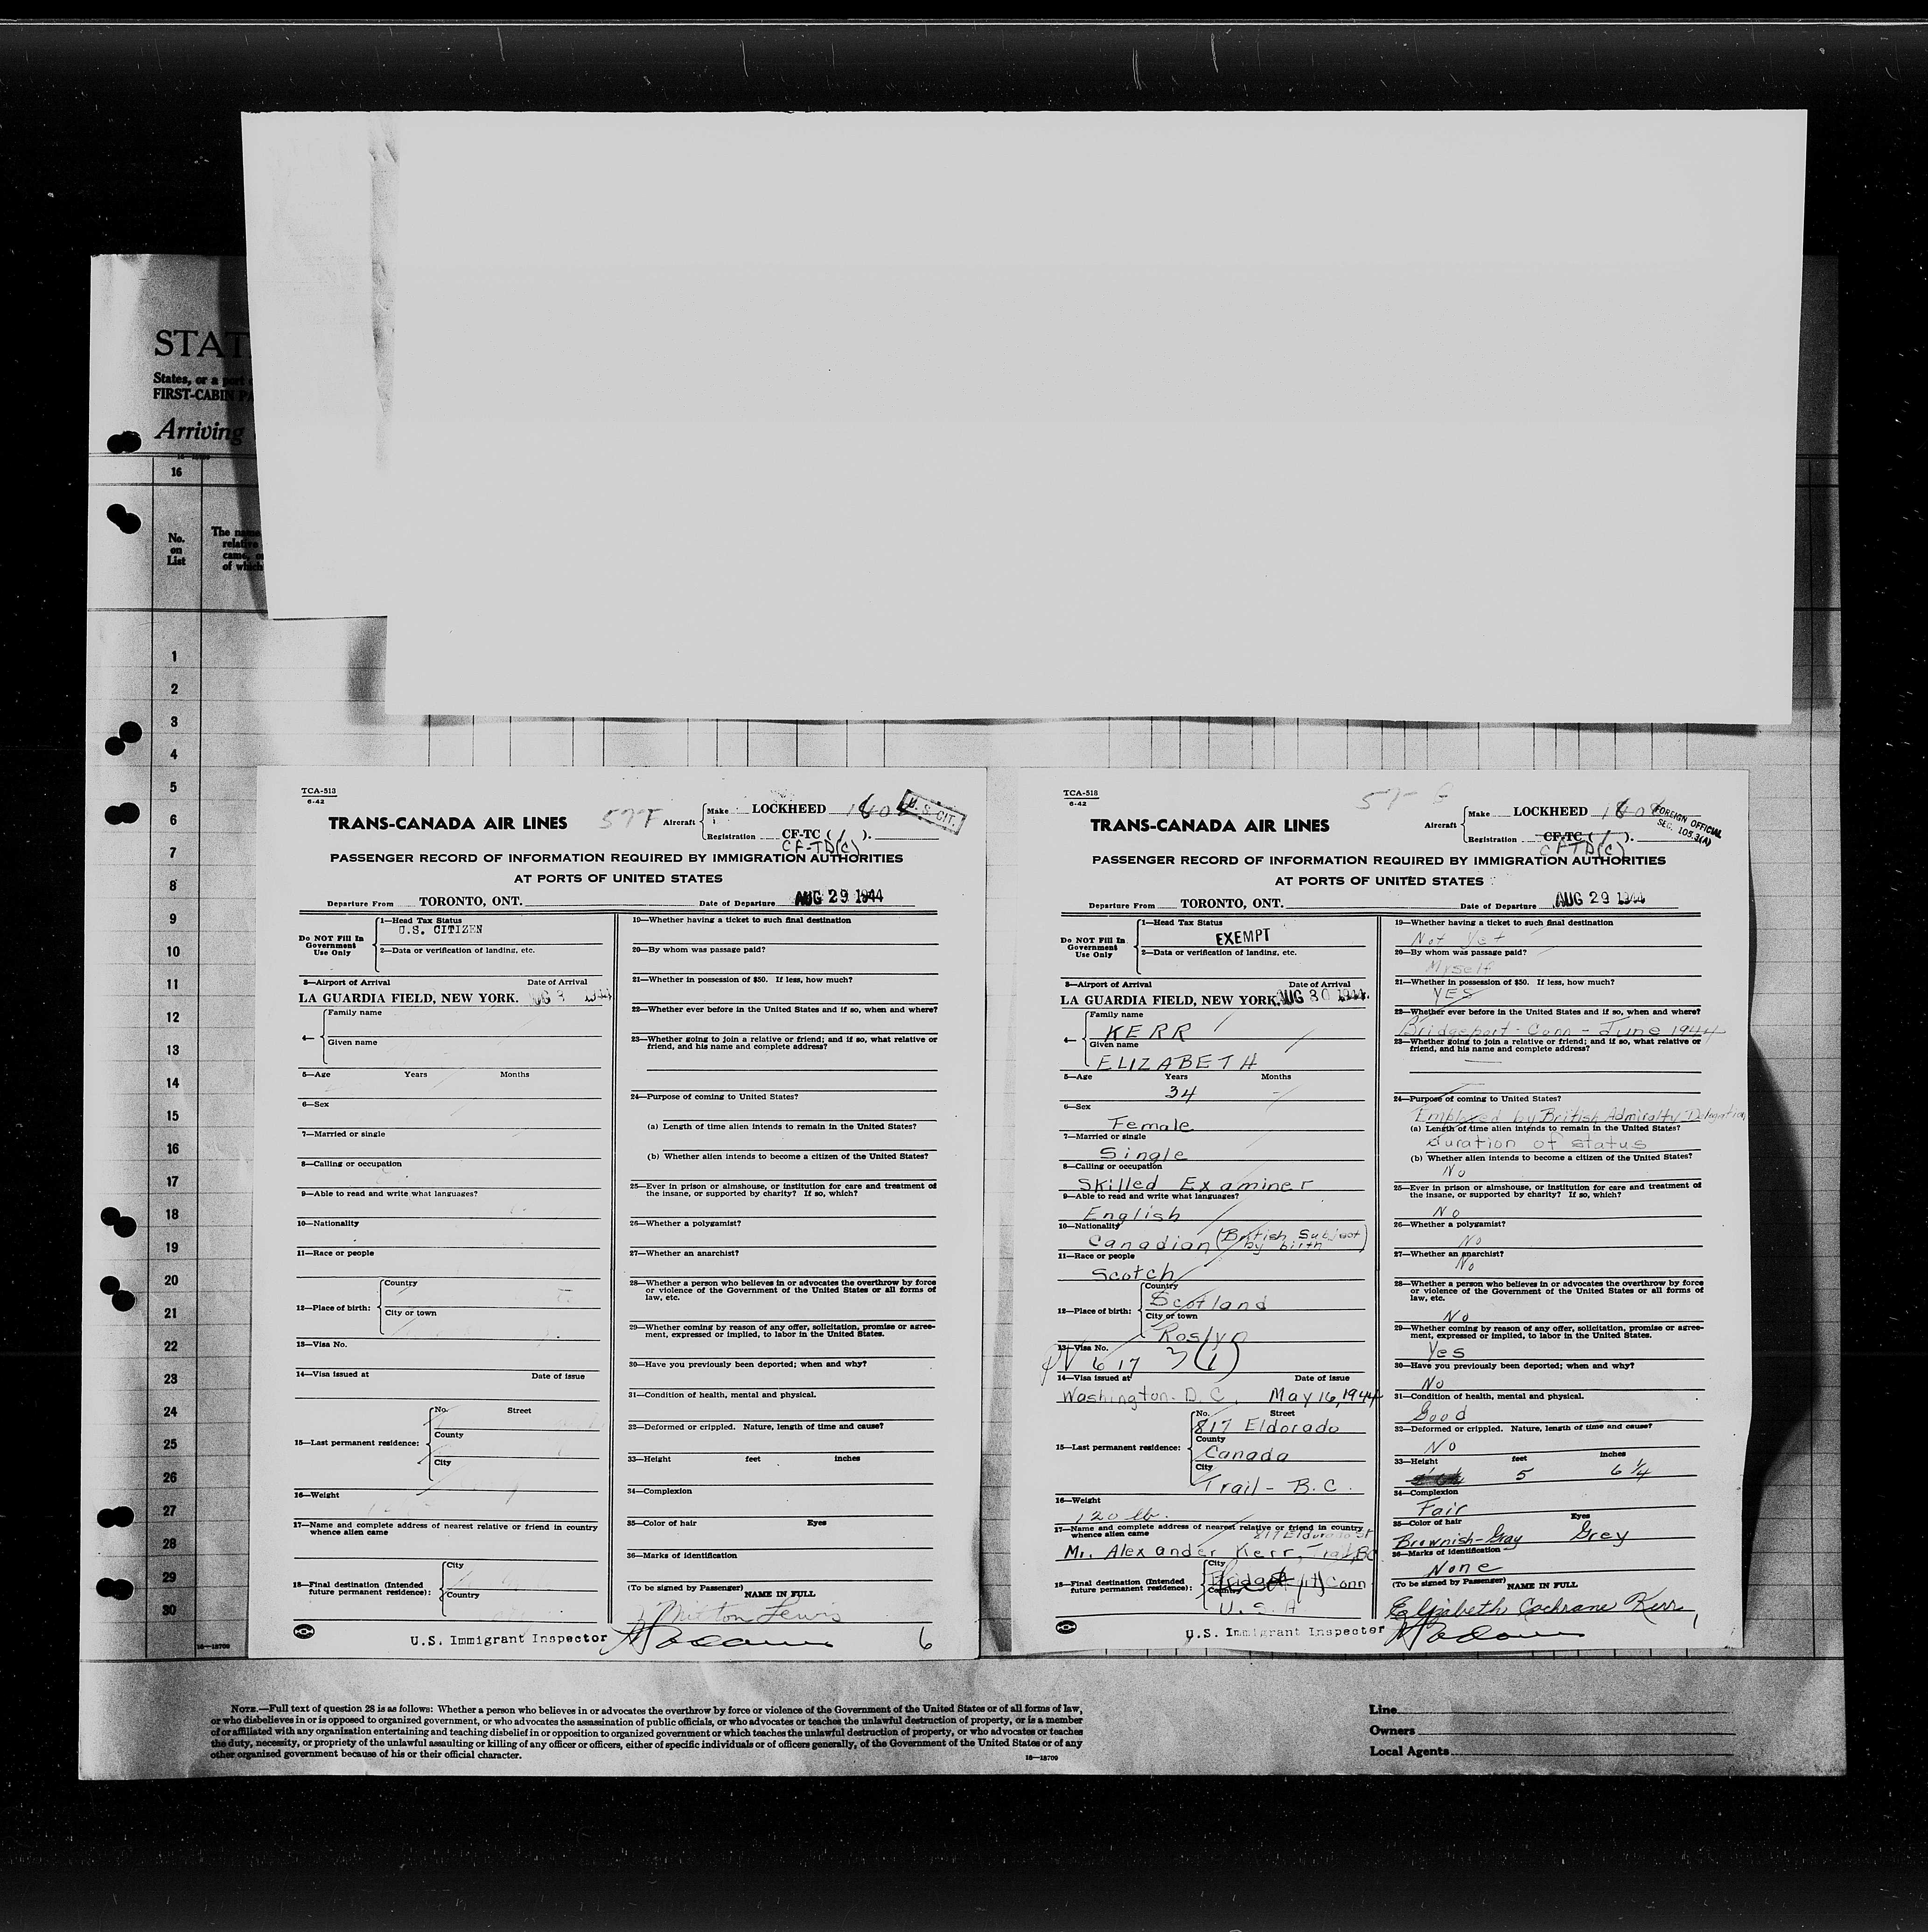 STAT
States, or a port o
FIRST-CABIN PA
Arriving
16
No.
on
List
The name
relative
came, o
of which
1
2
3
4
5
6
7
8
9
10
11
12
13
14
15
16
17
18
19
20
21
22
23
24
25
26
27
28
29
30
16—18709
TCA-513
6-42
TRANS-CANADA AIR LINES
57F
Aircraft
Make LOCKHEED
U. S. CIT.
Registration CF-TC ( / ).
CF-TD(C)
PASSENGER RECORD OF INFORMATION REQUIRED BY IMMIGRATION AUTHORITIES
AT PORTS OF UNITED STATES
Departure From TORONTO, ONT. Date of Departure AUG 29 1944
Do NOT Fill In
Government
Use Only
1—Head Tax Status
U.S. CITIZEN
2—Data or verification of landing, etc.
3—Airport of Arrival Date of Arrival
LA GUARDIA FIELD, NEW YORK.
4—
Family name
Given name
5—Age Years Months
6—Sex
7—Married or single
8—Calling or occupation
9—Able to read and write what languages?
10—Nationality
11—Race or people
12—Place of birth:
Country
City or town
13—Visa No.
14—Visa issued at Date of issue
15—Last permanent residence:
No. Street
County
City
16—Weight
17—Name and complete address of nearest relative or friend in country
whence alien came
18—Final destination (Intended
future permanent residence):
City
Country
19—Whether having a ticket to such final destination
20—By whom was passage paid?
21—Whether in possession of $50. If less, how much?
22—Whether ever before in the United States and if so, when and where?
23—Whether going to join a relative or friend; and if so, what relative or
friend, and his name and complete address?
24—Purpose of coming to United States?
(a) Length of time alien intends to remain in the United States?
(b) Whether alien intends to become a citizen of the United States?
25—Ever in prison or almshouse, or institution for care and treatment of
the insane, or supported by charity? If so, which?
26—Whether a polygamist?
27—Whether an anarchist?
28—Whether a person who believes in or advocates the overthrow by force
or violence of the Government of the United States or all forms of
law, etc.
29—Whether coming by reason of any offer, solicitation, promise or agree-
ment, expressed or implied, to labor in the United States.
30—Have you previously been deported; when and why?
31—Condition of health, mental and physical.
32—Deformed or crippled. Nature, length of time and cause?
33—Height feet inches
34—Complexion
35—Color of hair Eyes
36—Marks of identification
(To be signed by Passenger) NAME IN FULL
Milton Lewis
U.S. Immigrant Inspector
6
TCA-513
6-42
TRANS-CANADA AIR LINES
57
Aircraft
Make LOCKHEED
FOREIGN OFFICIAL
SEC. 105.3(A)
Registration CF-TC ( / ).
CFTD(C)
PASSENGER RECORD OF INFORMATION REQUIRED BY IMMIGRATION AUTHORITIES
AT PORTS OF UNITED STATES
Departure From TORONTO, ONT. Date of Departure AUG 29 1944
Do NOT Fill In
Government
Use Only
1—Head Tax Status
EXEMPT
2—Data or verification of landing, etc.
3—Airport of Arrival Date of Arrival
LA GUARDIA FIELD, NEW YORK. AUG 30 1944.
4—
Family name
KERR
Given name
ELIZABETH
5—Age Years Months
34 -
6—Sex
Female
7—Married or single
Single
8—Calling or occupation
Skilled Examiner
9—Able to read and write what languages?
English
10—Nationality
Canadian (British Subject
by birth)
11—Race or people
Scotch
12—Place of birth:
Country
Scotland
City or town
Roslyn
13—Visa No.
PV 617 3(1)
14—Visa issued at Date of issue
Washington. D.C. May 16, 1944
15—Last permanent residence:
No. Street
817 Eldorado
County
Canada
City
Trail - B.C.
16—Weight
120 lb.
17—Name and complete address of nearest relative or friend in country
whence alien came
817 Eldorado St
Mr. Alexander Kerr, Trail, BC
18—Final destination (Intended
future permanent residence):
City
Conn
Country
U.S.A
19—Whether having a ticket to such final destination
Not yet
20—By whom was passage paid?
Myself
21—Whether in possession of $50. If less, how much?
YES
22—Whether ever before in the United States and if so, when and where?
Bridgeport - Conn - June 1944
23—Whether going to join a relative or friend; and if so, what relative or
friend, and his name and complete address?
24—Purpose of coming to United States?
Employed by British Admiralty Delegation
(a) Length of time alien intends to remain in the United States?
duration of status
(b) Whether alien intends to become a citizen of the United States?
No
25—Ever in prison or almshouse, or institution for care and treatment of
the insane, or supported by charity? If so, which?
No
26—Whether a polygamist?
No
27—Whether an anarchist?
No
28—Whether a person who believes in or advocates the overthrow by force
or violence of the Government of the United States or all forms of
law, etc.
No
29—Whether coming by reason of any offer, solicitation, promise or agree-
ment, expressed or implied, to labor in the United States.
Yes
30—Have you previously been deported; when and why?
No
31—Condition of health, mental and physical.
Good
32—Deformed or crippled. Nature, length of time and cause?
No
33—Height feet inches
5 6 ¼
34—Complexion
Fair
35—Color of hair Eyes
Brownish-Gray Grey
36—Marks of identification
None
(To be signed by Passenger) NAME IN FULL
Elizabeth Cochrane Kerr
U.S. Immigrant Inspector
1
NOTE.—Full text of question 28 is as follows: Whether a person who believes in or advocates the overthrow by force or violence of the Government of the United States or of all forms of law,
or who disbelieves in or is opposed to organized government, or who advocates the assassination of public officials, or who advocates or teaches the unlawful destruction of property, or is a member
of or affiliated with any organization entertaining and teaching disbelief in or opposition to organized government or which teaches the unlawful destruction of property, or who advocates or teaches
the duty, necessity, or propriety of the unlawful assaulting or killing of any officer or officers, either of specific individuals or of officers generally, of the Government of the United States or of any
other organized government because of his or their official character.
16—18709
Line
Owners
Local Agents